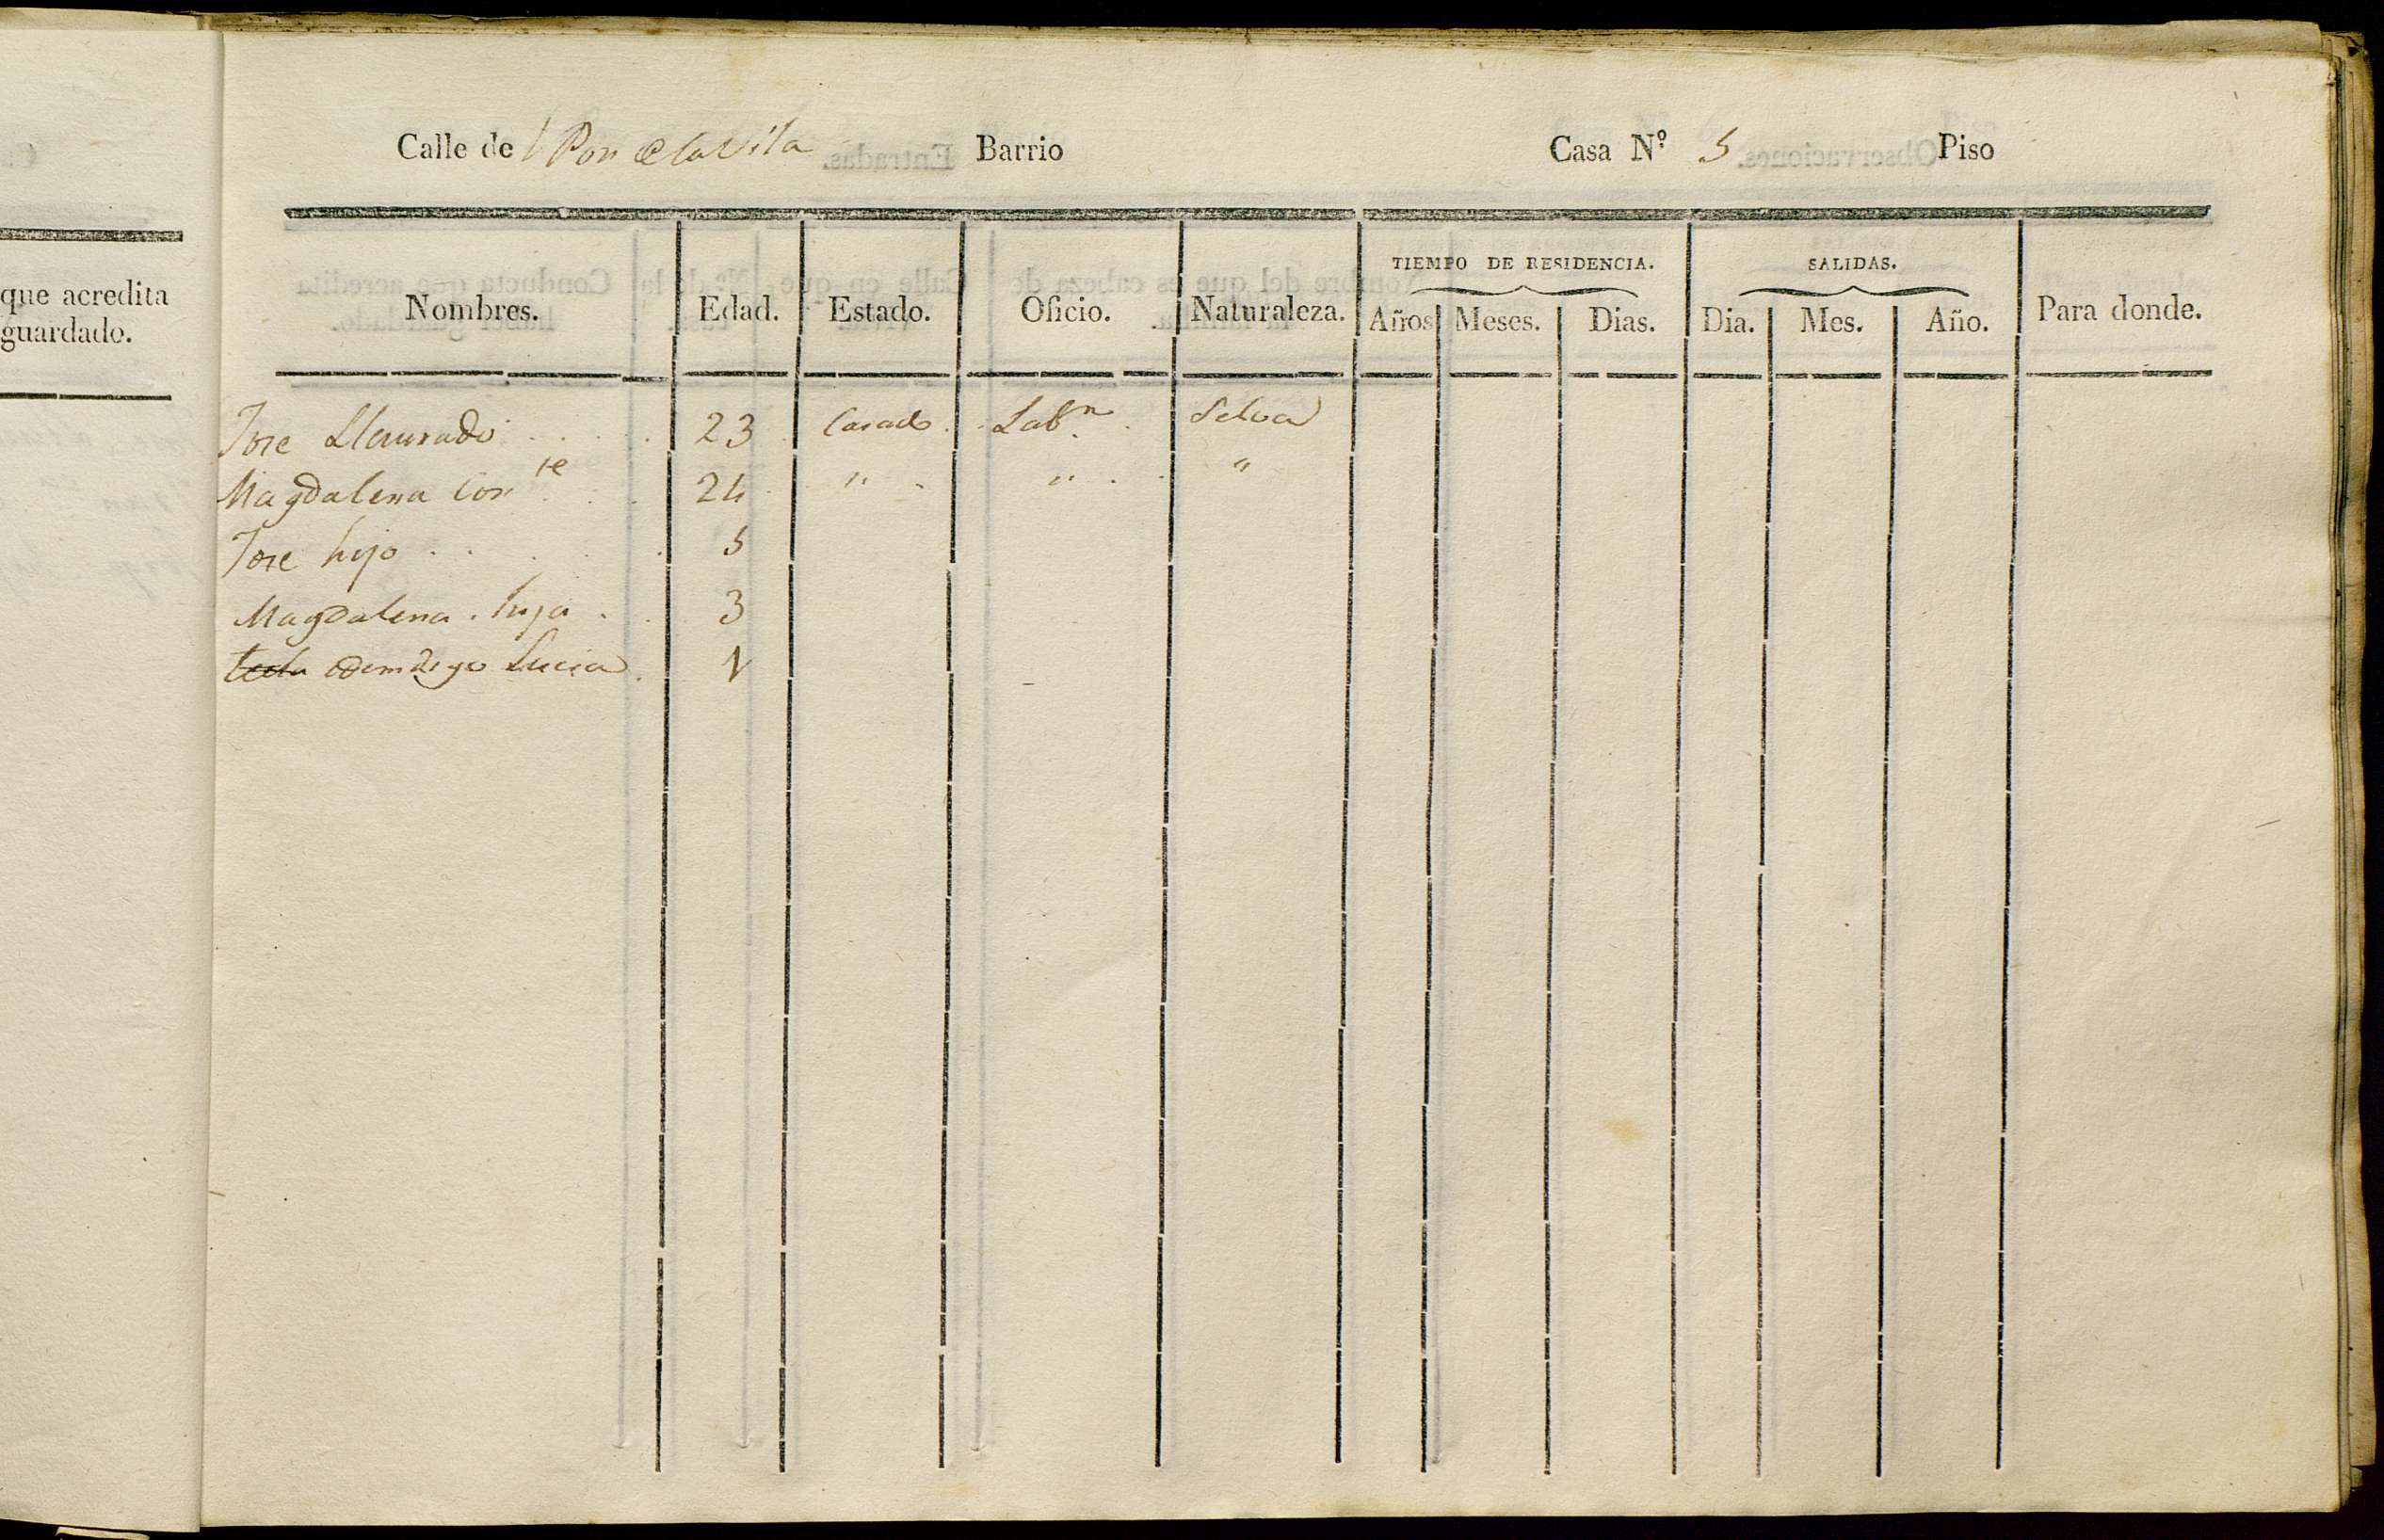 Calle de l Pon de la Vila Barrio Casa N.º 5 Piso
que acredita
guardado.
TIEMPO DE RESIDENCIA. SALIDAS.
Nombres. Edad. Estado. Oficio. Naturaleza. Años Meses. Dias. Dia. Mes. Año. Para donde.
Jose Llaurado 23 Casado Lab.r Selva
Magdalena Con.te 24 " " "
Jose hijo 5
Magdalena hija 3
Tecla Lucia 1